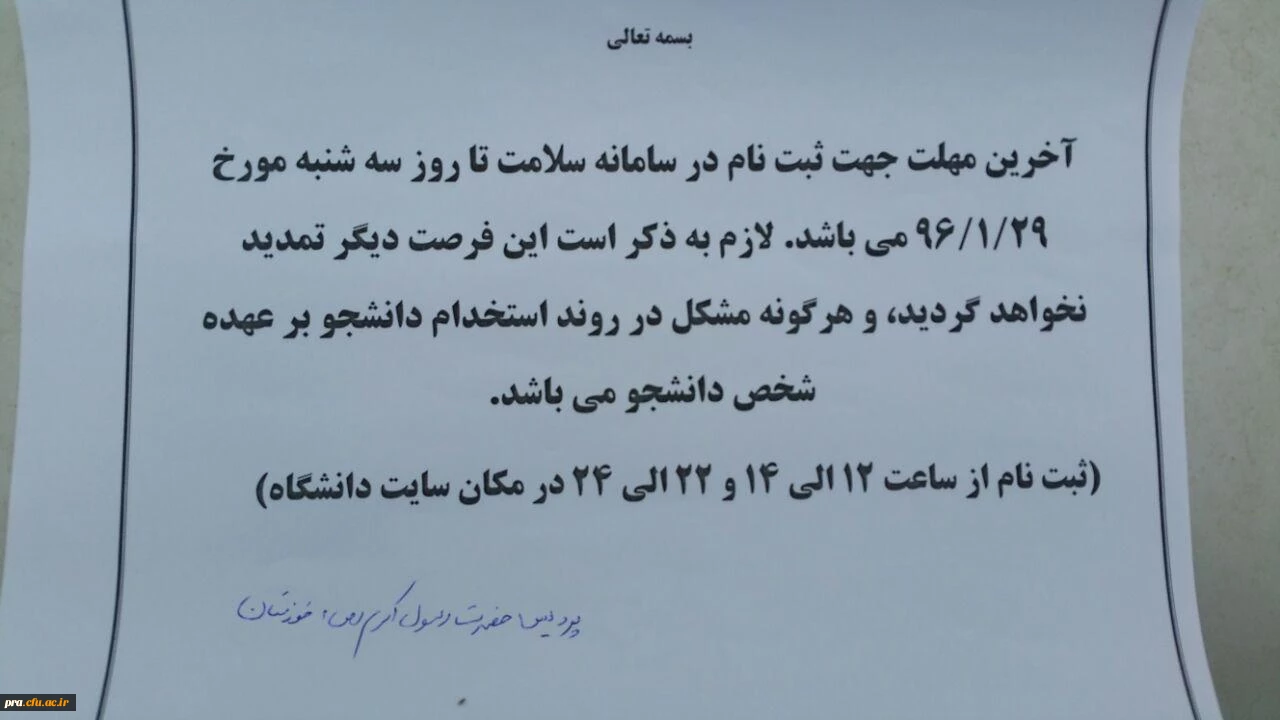 بسمه تعالی
آخرین مهلت جهت ثبت نام در سامانه سلامت تا روز سه شنبه مورخ
۹۶/۱/۲۹ می باشد. لازم به ذکر است این فرصت دیگر تمدید
نخواهد گردید، و هرگونه مشکل در روند استخدام دانشجو بر عهده
شخص دانشجو می باشد.
(ثبت نام از ساعت ۱۲ الی ۱۴ و ۲۲ الی ۲۴ در مکان سایت دانشگاه)
پردیس حضرت رسول اکرم (ص) خوزستان
pra.cfu.ac.ir